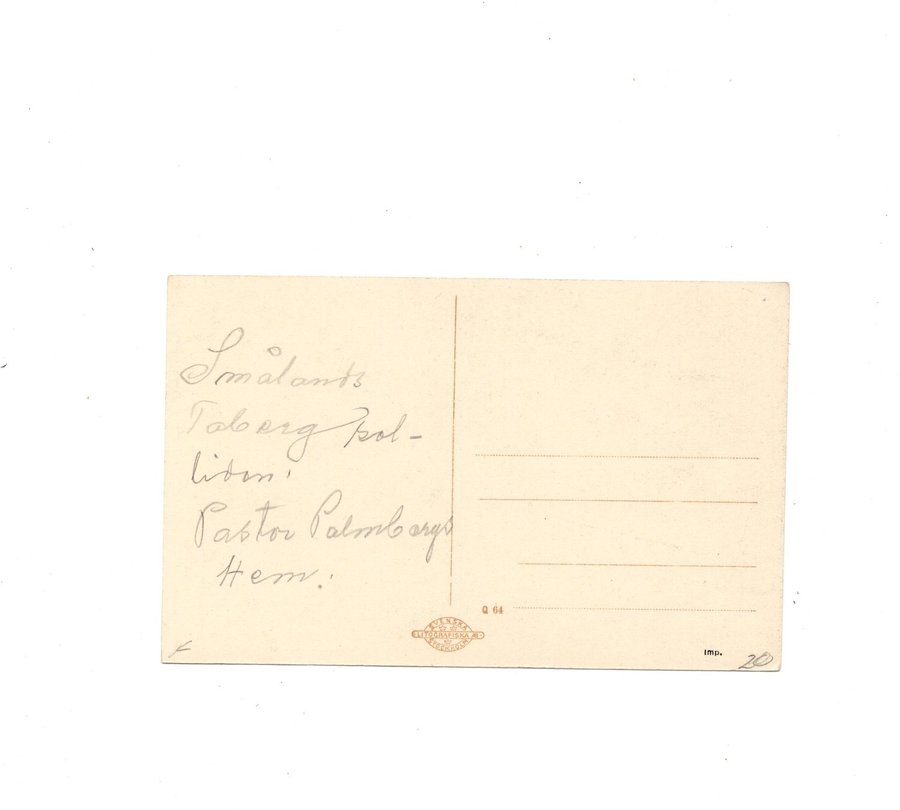 Smålands
Taberg Sol-
liden.
Pastor Palmbergs
Hem.
Q 64
SVENSKA
LITOGRAFISKA AB.
STOCKHOLM
Imp.
20